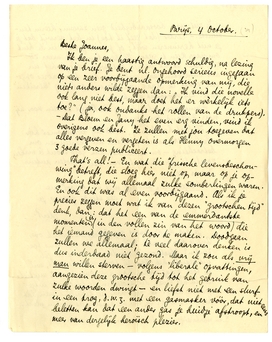 Parijs, 4 October.
Beste Joannes,
Ik ben je een haastig antwoord schuldig, na lezing
van je brief. Je bent nl. ongehoord serieus ingegaan
op een zeer voorbijgaande opmerking van mij, die
niets anders wilde zeggen dan: "Ik vind die novelle
ook lang niet best, maar doet hij er werkelijk iets
toe?" (ook ondanks het rollen van de drukpers).
dat Bloem en Jany het even erg vinden, vind ik
overigens ook best. Ze zullen mij toch toegeven dat
alles vergeven en vergeten is als Henny overmorgen
3 goede verzen publiceert.
That's all! – En wat die "frissche levensbeschou-
wing" betreft, die sloeg hier niet op, maar op je op-
merking dat wij allemaal zulke somberlingen waren.
En ook dit was al even voorbijgaand. Als ik je
precies zeggen moet wat ik van dezen "grootschen tijd"
denk, dan: dat het een van de emmerdantste
momenten is (in den vollen zin van het woord) die
het iemand gegeven is door te maken. Doodgaan
zullen we allemaal; te veel daarover denken is
dus inderdaad niet gezond. Maar ik zou als vrij
man willen sterven – volgens "liberale" opvattingen,
aangezien deze grootsche tijd tot het gebruik van
zulke woorden dwingt – en liefst niet met een slurf
in een trog, d.w.z. met een gasmasker vóór, dat niet
beletten kan dat een ander gas je huidje afstroopt, en
meer van dergelijk heroïsch plezier.